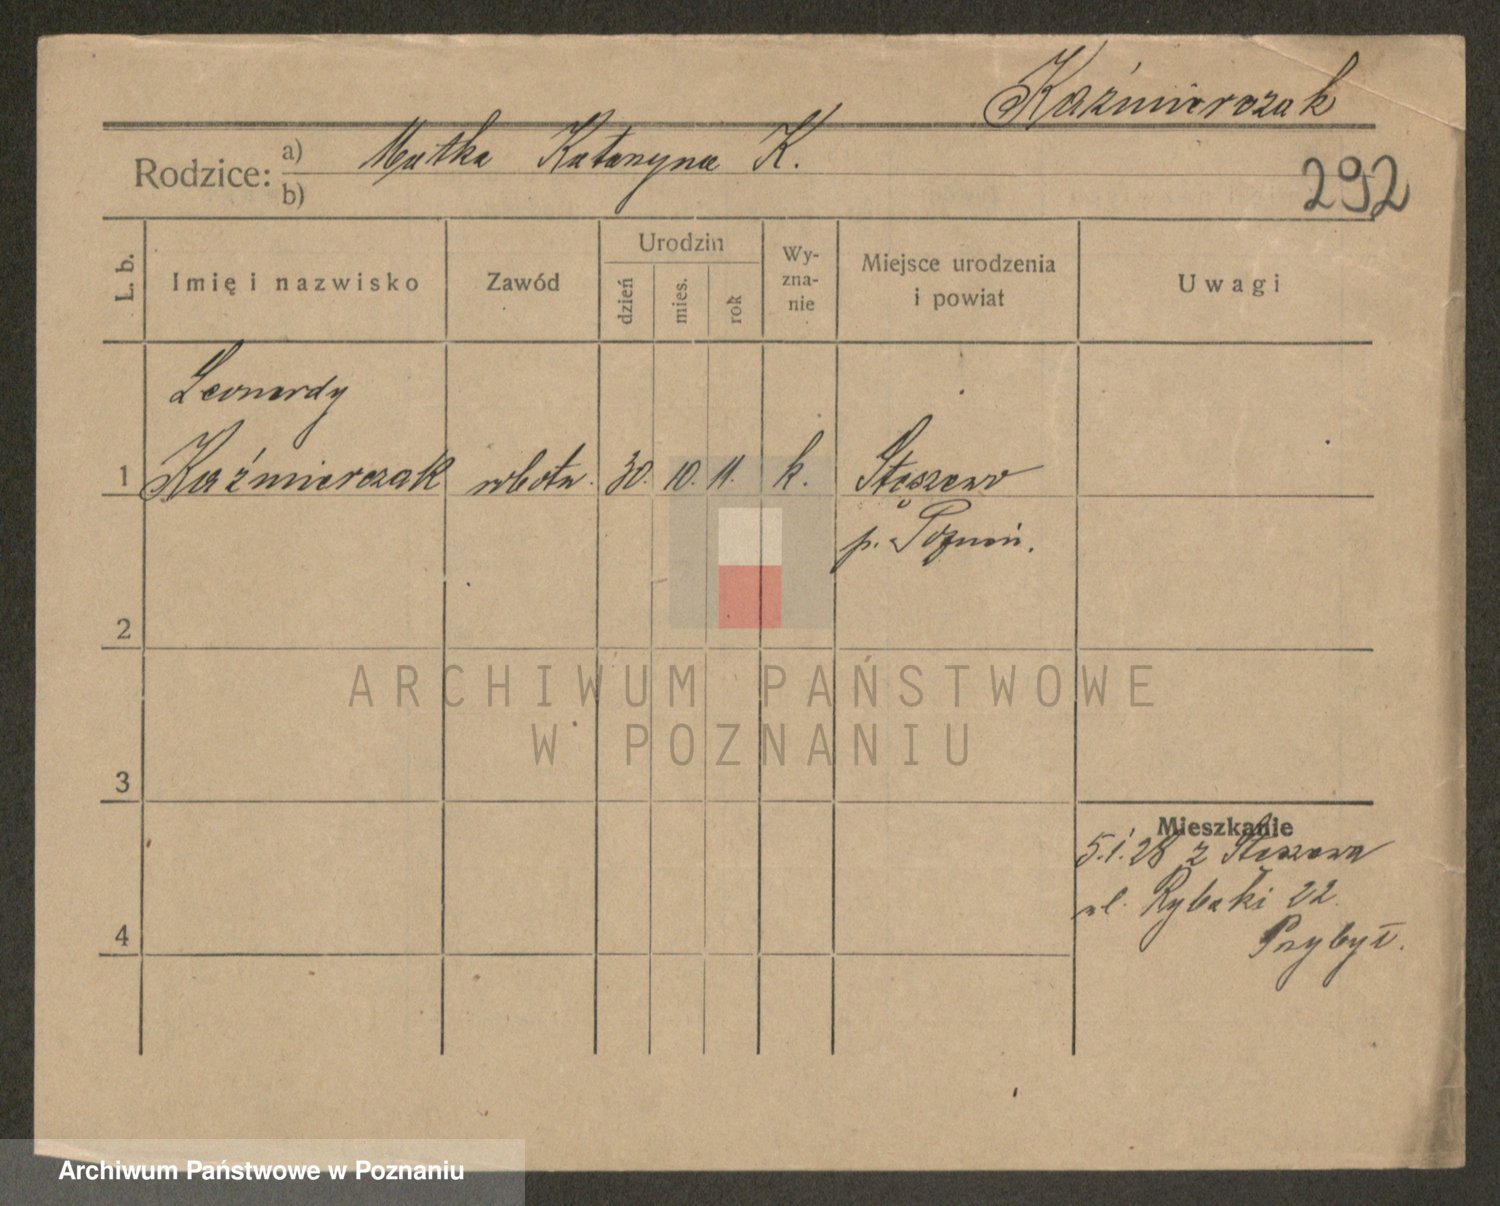 Kaźmierczak
Rodzice: a) Matka Katarzyna K.
b)
292
L. b.
Imię i nazwisko
Zawód
Urodzin
dzień
mies.
rok
Wy-
zna-
nie
Miejsce urodzenia
i powiat
Uwagi
Leonardy
1 Kaźmierczak robotn. 30. 10. 11. k. Stęszewo
p. Poznań.
2
ARCHIWUM PAŃSTWOWE
W POZNANIU
3
Mieszkanie
5.1.28 z Stęszewa
ul. Rybaki 22.
Przybył.
4
Archiwum Państwowe w Poznaniu